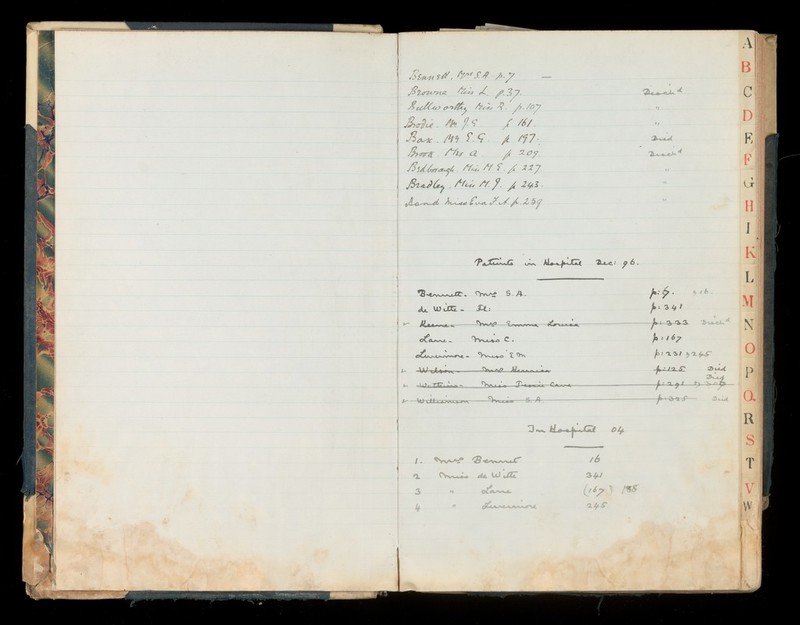 Bennett, Mrs S.A. p. 7 —
Browne Miss L. p 37. Disch'd
Bullworthy Miss R. p. 107 "
Brodie. Mr J.G. p 161. "
Bax. Mr S.G. p. 197. Died
Brook Mrs A p 209 Disch'd
Bedborough. Miss M.E. p 227 "
Bradley, Miss M.J. p 243. "
Band Miss Eva F.A. p. 289 "
Patients in Hospital Dec: 96.
Bennett. Mrs S.A. p: 7. p. 16.
de Witte - p: 341
Mrs Emma Louisa p: 333 Disch'd
Lane. Miss C. p: 167
Livermore - Miss E.M. p: 231 & 245
Wilson. Mrs p: 125 Died
Watkins Miss Jessie p: 291 Died
Williamson Miss S.A p: 325 Died
In Hospital 04
1. Mrs Bennet 16
2 Miss de Witte 341
3 " Lane (167) 185
4 " Livermore 245
A
B
C
D
E
F
G
H
I
K
L
M
N
O
P
Q.
R
S
T
V
W